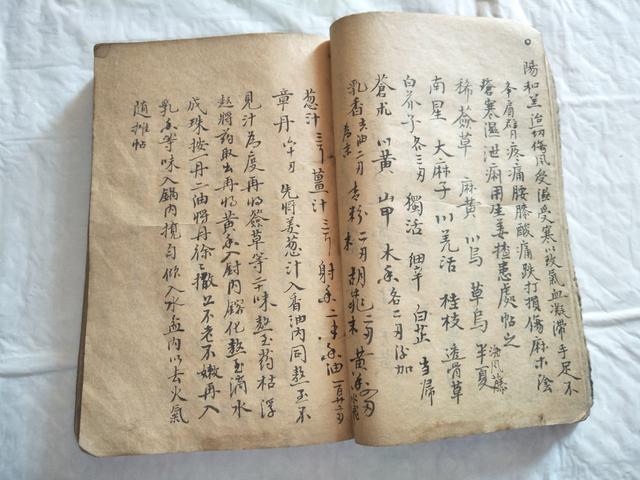 陽和羔治切傷風受濕受寒以致氣血凝滯手足不
冬肩臂疼痛腰膝酸痛跌打損傷麻木陰
瘡寒濕泄痢用生姜搽患處帖之
豨薟草 麻黃 川烏 草烏 半夏 海風藤
南星 大麻子 川羌活 桂枝 透骨草
白芥子各三刃 獨活 細辛 白芷 当歸
蒼朮 川黃 山甲 木香各二刃 加
乳香去油二刃 末 官粉二刃 胡 末二刃 黃香四刃
葱汁三斤 薑汁三斤 射香二 香油一百廿刃
章丹六十刃 先將姜葱汁入香油內同熬至不
見汁為度再將薟草等二十味熬至药枯浮
起將药取出再將黃香入對內鎔化熬至滴水
成珠按一刃二油將丹徐徐撒下不老不嫩再入
乳香等味入鍋內攪勻傾入水盆內以去火氣
随攤帖